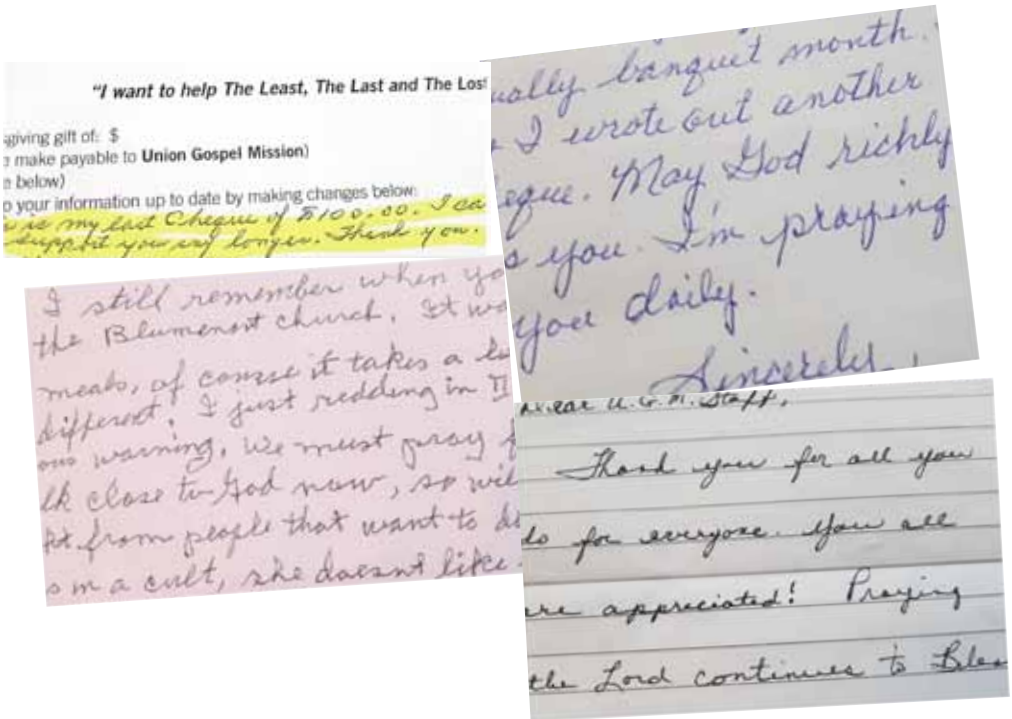 "I want to help The Least, The Last and The Lost
giving gift of: $
make payable to Union Gospel Mission)
below)
o your information up to date by making changes below:
is my last Cheque of $100.00. I ca
support you any longer. Thank you.
ually banquet month.
I wrote out another
eque. May God richly
s you. I'm praying
you daily.
Sincerely,
I still remember when yo
the Blumenort church. It wa
meals, of course it takes a lo
different. I just redding in II
ous warning, we must pray f
lk close to God now, so wil
pt from people that want to de
s m a cult, she doesnt like
Dear U.G.M. Staff,
Thank you for all you
do for everyone. You all
are appreciated! Praying
the Lord continues to Bles